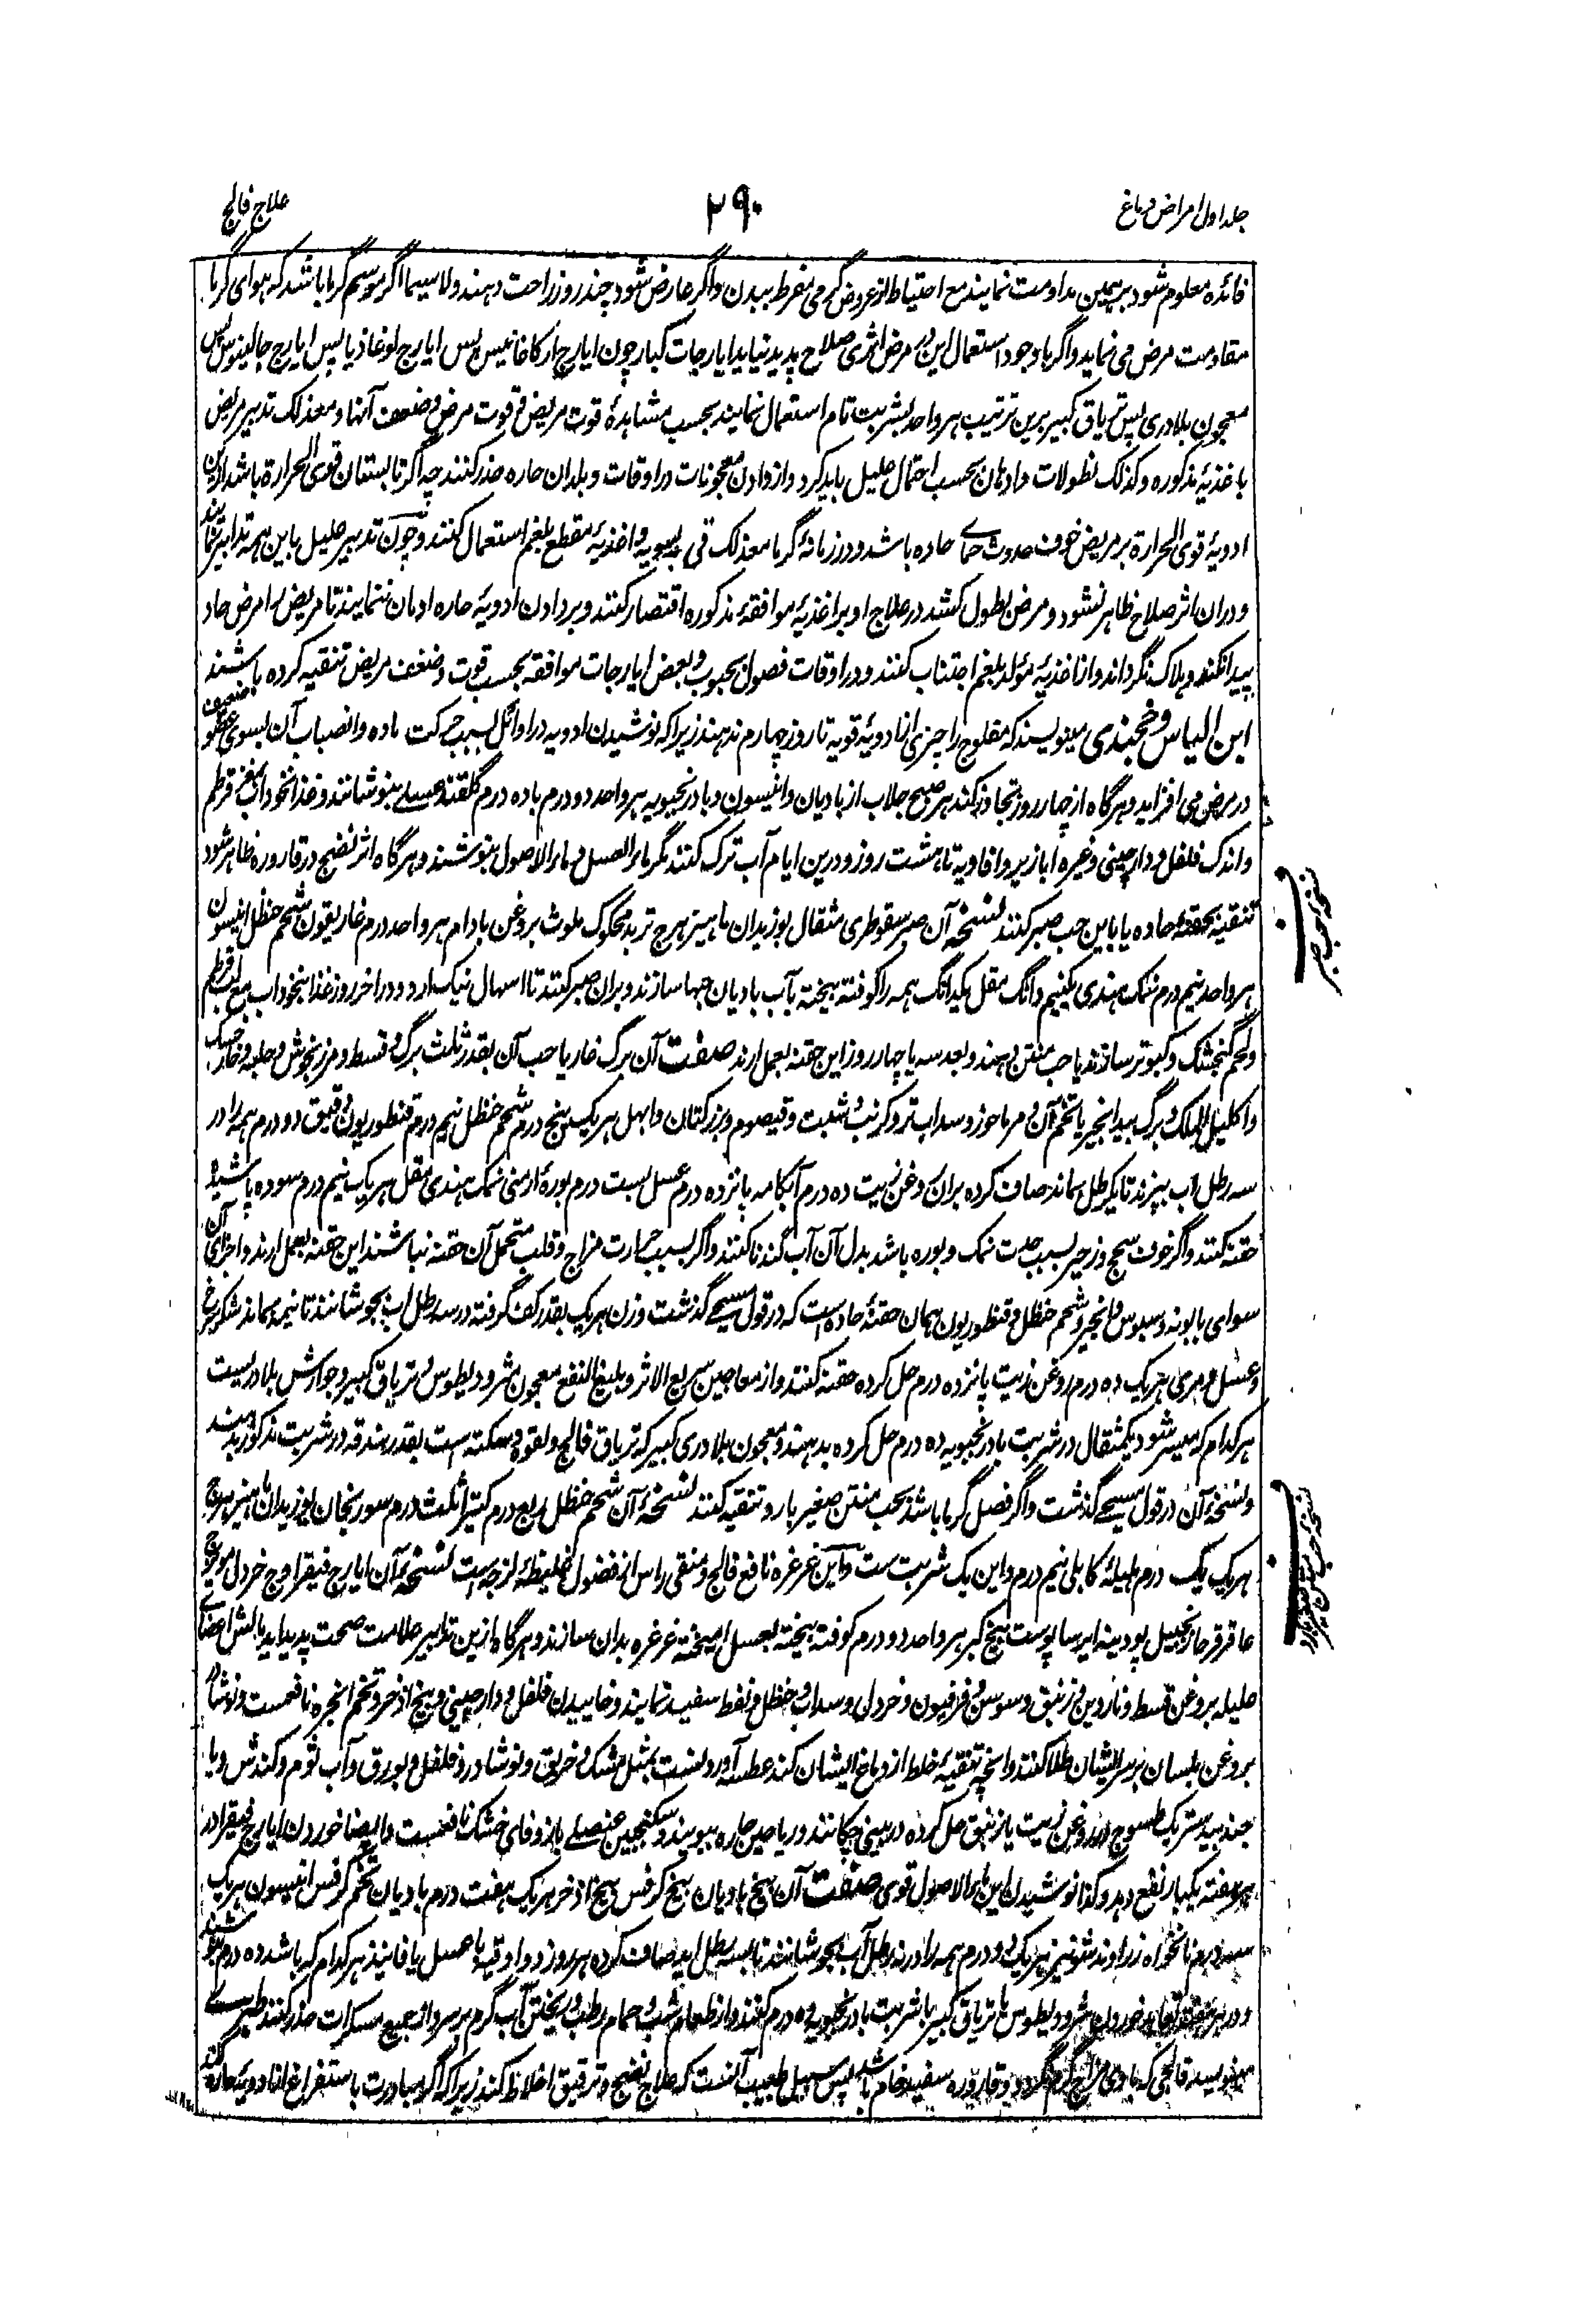 جلد اول امراض دماغ
۲۹۰
علاج فالج
فائده معلوم شود بر همین مداومت نمایند مع احتیاط از عروض گرمی مفرط ببدن و اگر عارض شود چند روز راحت دهند و لا سیما اگر موسم گرما باشد که هوای گرما
مقاومت مرض می نماید و اگر با وجود استعمال این در مرض اثری صلاح پدید نیاید ایارجات کبار چون ایارج ارکاغانیس پس ایارج لوغاذیا پس ایارج جالینوس پس
معجون بلادری پس تریاق کبیر برین ترتیب هر واحد بشربت تام استعمال نمایند بحسب مشاهدۀ قوت مریض و قوت مرض و ضعف آنها و معذلک تدبیر مریض
باغذیۀ مذکوره و کذلک نطولات و ادهان بحسب احتمال علیل باید کرد و از دادن معجونات در اوقات و بلدان حاره حذر کنند چه اگر تابستان قوی الحرارة باشد ازین
ادویۀ قوی الحرارة بر مریض خوف حدوث حمای حاده باشد و در زمانۀ گرما معذلک قی و اغذیۀ مقطع بلغم استعمال کنند و چون تدبیر علیل باین همه تدابیر نمایند
و دران اثر صلاح ظاهر نشود و مرض بطول کشد در علاج او بر اغذیۀ موافقۀ مذکوره اقتصار کنند و بر دادن ادویۀ حاره ادمان ننمایند تا مریض را مرض حاد
پیدا نکند و هلاک نگرداند و از اغذیۀ مولد بلغم اجتناب کنند و در اوقات فصول بحبوب و بعض ایارجات موافقه بحسب قوت و ضعف مریض تنقیه کرده باشند
ابن الیاس و خجندی مینویسند که مفلوج را چیزی از ادویۀ قویه تا روز چهارم ندهند زیرا که نوشیدن ادویه در اوائل بسبب حرکت ماده و انصباب آن بسوی عضو ضعیف
در مرض می افزاید و هرگاه از چهار روز تجاوز کند هر صبح جلاب از بادیان و انیسون و بادرنجبویه هر واحد دو درم با ده درم گلقند عسلی بنوشانند و غذا نخوداب بمغز قرطم
و اندک فلفل و دارچینی و غیره ابازیر و افاویه تا هشت روز و درین ایام آب ترک کنند مگر ماء العسل و ماء الاصول بنوشند و هرگاه اثر نضج در قاروره ظاهر شود
تنقیه بحقنۀ حاده یا باین حب صبر کنند نسخۀ آن صبر سقوطری مثقال بوزیدان ماهیزهرج تربد محکوک ملوث بروغن بادام هر واحد درم غاریقون شحم حنظل انیسون
هر واحد نیم درم نمک هندی یکنیم دانگ مقل یکدانگ همه را کوفته بیخته بآب بادیان حبها سازند و بران صبر کنند تا اسهال نیک آرد و در آخر روز غذا نخوداب مع لب قرطم
و لحم گنجشک و کبوتر سازند یا حب منتن دهند و بعد سه یا چهار روز این حقنه بعمل آرند صفت آن برگ غار یا حب آن بقدر ثلث برگ و قسط و مرزنجوش و حلبه و خار خسک
و اکلیل الملک و برگ بیدانجیر یا تخم آن و مرماحوز و سداب تر و کرنب و شبت و قیصوم و بزرکتان و ابهل هر یک پنج درم شحم حنظل نیم درم قنطوریون دقیق دو درم همه را در
سه رطل آب بپزند تا یکرطل بماند صاف کرده بران روغن زیت ده درم آبکامه پانزده درم عسل بست درم بورۀ ارمنی نمک هندی مقل هر یک نیم درم سوده پاشیده
حقنه کنند و اگر خوف سحج و زحیر بسبب حدت نمک و بوره باشد بدل آن آب گندنا کنند و اگر بسبب حرارت مزاج و قلب متحمل آن حقنه نباشند این حقنه بعمل آرند و اجزای آن
سوای بابونه و سبوس و انجیر و شحم حنظل و قنطوریون همان حقنۀ حاده است که در قول مسیحی گذشت وزن هر یک بقدر کف گرفته در سه رطل آب بجوشانند تا نیمه بماند شکر سرخ
و عسل و مری هر یک ده درم روغن زیت پانزده درم حل کرده حقنه کنند و از معاجین سریع الاثر و بلیغ النفع معجون مثرودیطوس و تریاق کبیر و جوارش بلادریست
هر کدام که میسر شود یکمثقال در شربت بادرنجبویه ده درم حل کرده بدهند و معجون بلادری کبیر که تریاق فالج و لقوه و سکته است بقدر بندقه در شربت مذکور بدهند
و نسخۀ آن در قول مسیحی گذشت و اگر فصل گرما باشد بحب منتن صغیر بارد تنقیه کنند نسخۀ آن شحم حنظل ربع درم کتیرا ثلث درم سورنجان بوزیدان ماهیزهرج
هر یک یک درم هلیلۀ کابلی نیم درم و این یک شربت ست و این غرغره نافع فالج و منقی راس از فضول غلیظۀ لزجه است نسخۀ آن ایارج فیقرا وج خردل مویزج
عاقرقرحا زنجبیل پودینه ایرسا پوست بیخ کبر هر واحد دو درم کوفته بیخته بعسل آمیخته غرغره بدان سازند و هرگاه ازین تدابیر علامت صحت پدید آید مالش اعضای
علیله بروغن قسط و ناردین و زنبق و سوسن و فرفیون و خردل و سداب و حنظل و نفط سفید نمایند و خاییدن فلفل و دارچینی و بیخ اذخر و تخم انجره نافعست و
بروغن بلسان بر سر ایشان طلا کنند و آنچه تنقیۀ خلط از دماغ ایشان کند عطسه آوردنست بمثل مشک و خربق و نوشادر و فلفل و بورق و آب ثوم و کندش و یا
جندبیدستر یک طسوج در روغن زیت یا زنبق حل کرده در بینی چکانند و ریاحین حاره ببویند و سکنجبین عنصلی با زوفای خشک نافعست و ایضا خوردن ایارج فیقرا در
هر هفته یکبار نفع دهد و کذا نوشیدن این ماء الاصول قوی صفت آن بیخ بادیان بیخ کرفس بیخ اذخر هر یک هفت درم بادیان تخم کرفس انیسون هر یک
سه درم نانخواه زراوند شونیز هر یک دو درم همه را در رطل آب بجوشانند تا بسه رطل آید صاف کرده هر روز دو اوقیه با عسل یا فانیذ هر کدام که باشد ده درم بنوشند
و در هر هفته خوردن مثرودیطوس یا تریاق کبیر با شربت بادرنجبویه ده درم کنند و از طعام شب و حمام رطب و ریختن آب گرم بر سر و از جمیع مسکرات حذر کنند طبری
مینویسد فالجی که با وی مزاج گرم نگردد و قاروره سفید خام باشد پس سبیل طبیب آنست که علاج نضج و ترقیق اخلاط کند زیرا که اگر مبادرت باستفراغ از ادویۀ حاره کند
نسخۀ حب صبر
نسخۀ حب منتن صغیر بارد